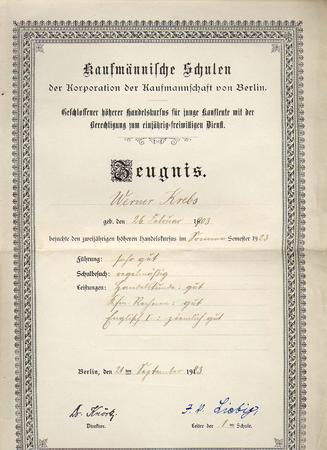 Kaufmännische Schulen
der Korporation der Kaufmannschaft von Berlin.
Geschlossener höherer Handelskursus für junge Kaufleute mit der
Berechtigung zum einjährig-freiwilligen Dienst.
Zeugnis.
Werner Krebs
geb. den 26. Februar 1903
besuchte den zweijährigen höheren Handelskursus im Sommer Semester 1923
Führung: sehr gut
Schulbesuch: regelmäßig
Leistungen: Handelskunde: gut
Kfm. Rechnen: gut
Englisch I: ziemlich gut
Berlin, den 21ten September 1923
Dr.
F. A. Liebig
Direktor.
Leiter der 1ten Schule.